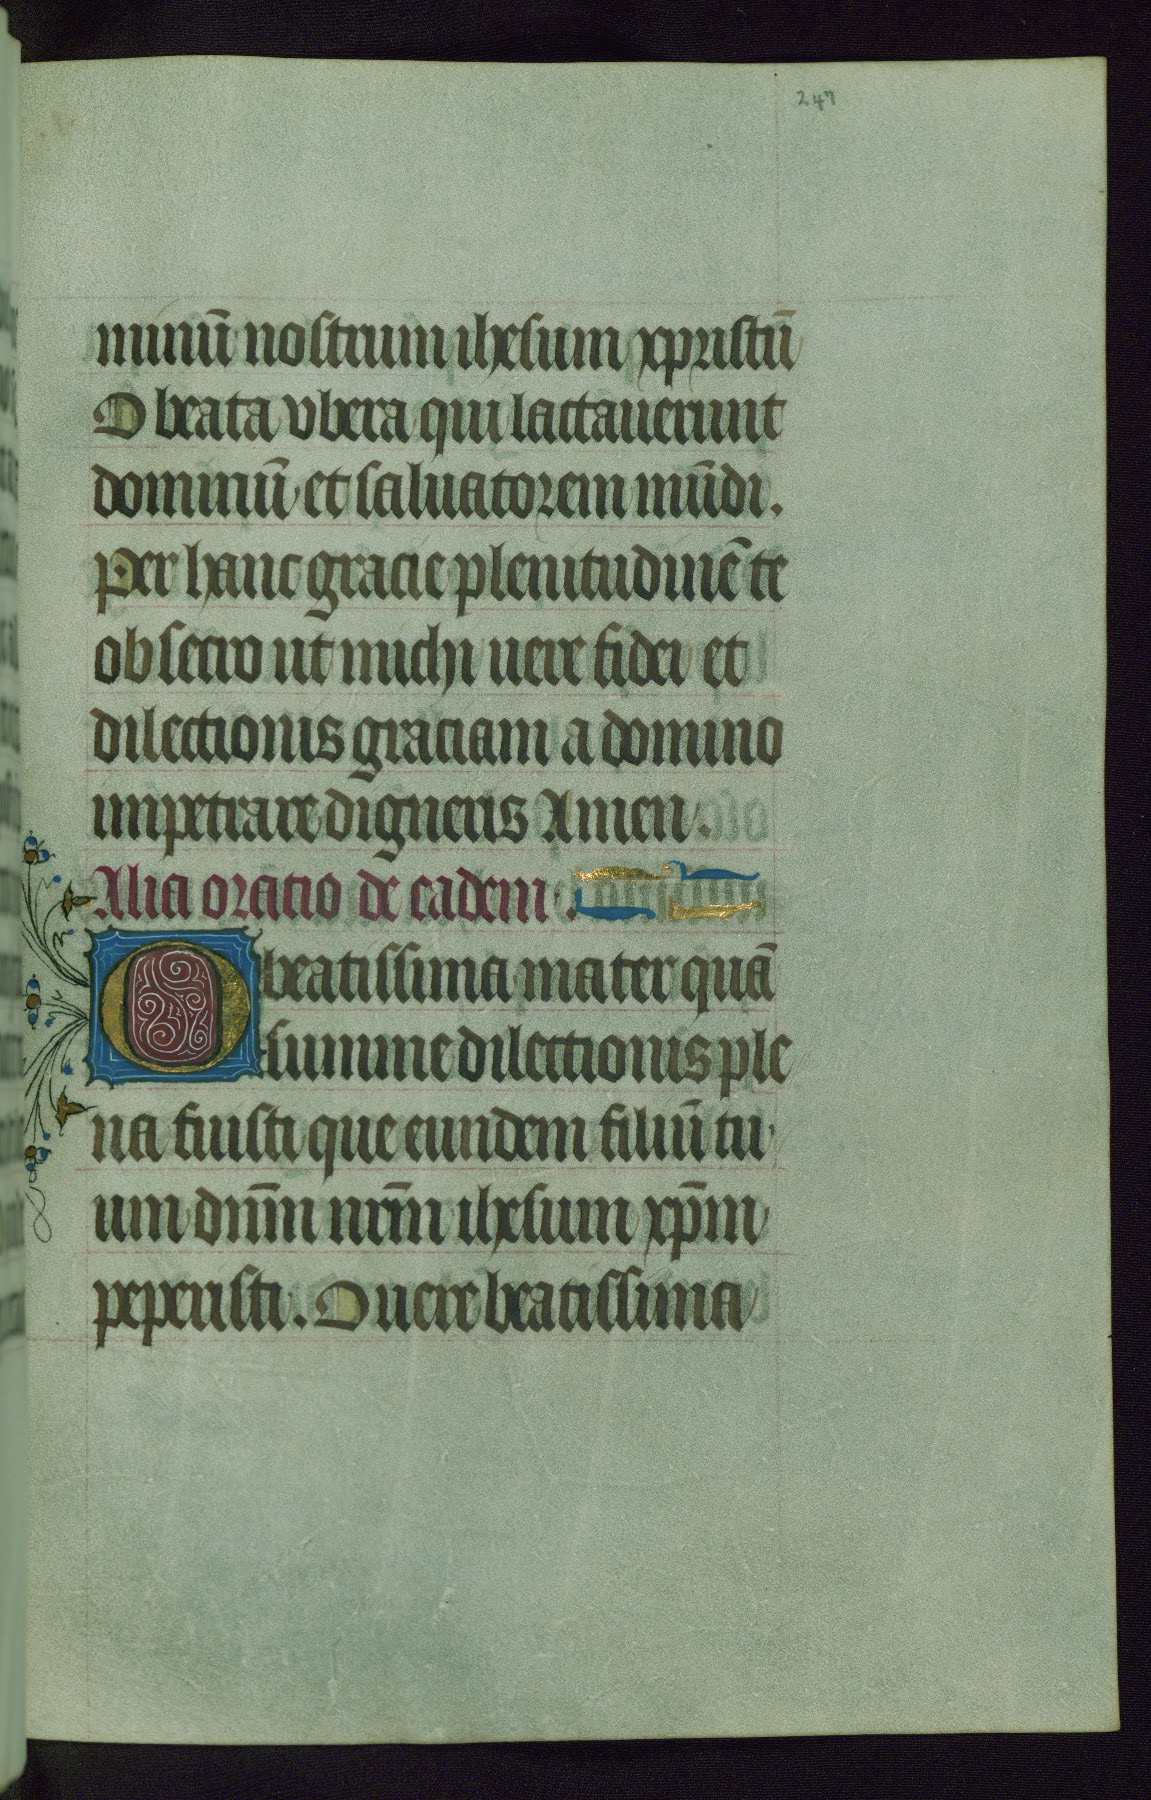 247
minū nostrum ihesum xpristū
O beata vbera qui lactauerunt
dominū et saluatorem mūdi.
Per hanc gracie plenitudinē te
obsecro ut michi uere fidei et
dilectionis graciam a domino
impetrare digneris Amen.
Alia oracio de eadem.
O beatissima mater quā
summe dilectionis ple
na fuisti que eundem filiū tu
um dnm̄ nrm̄ ihesum xpm̄
peperisti. O uere beatissima